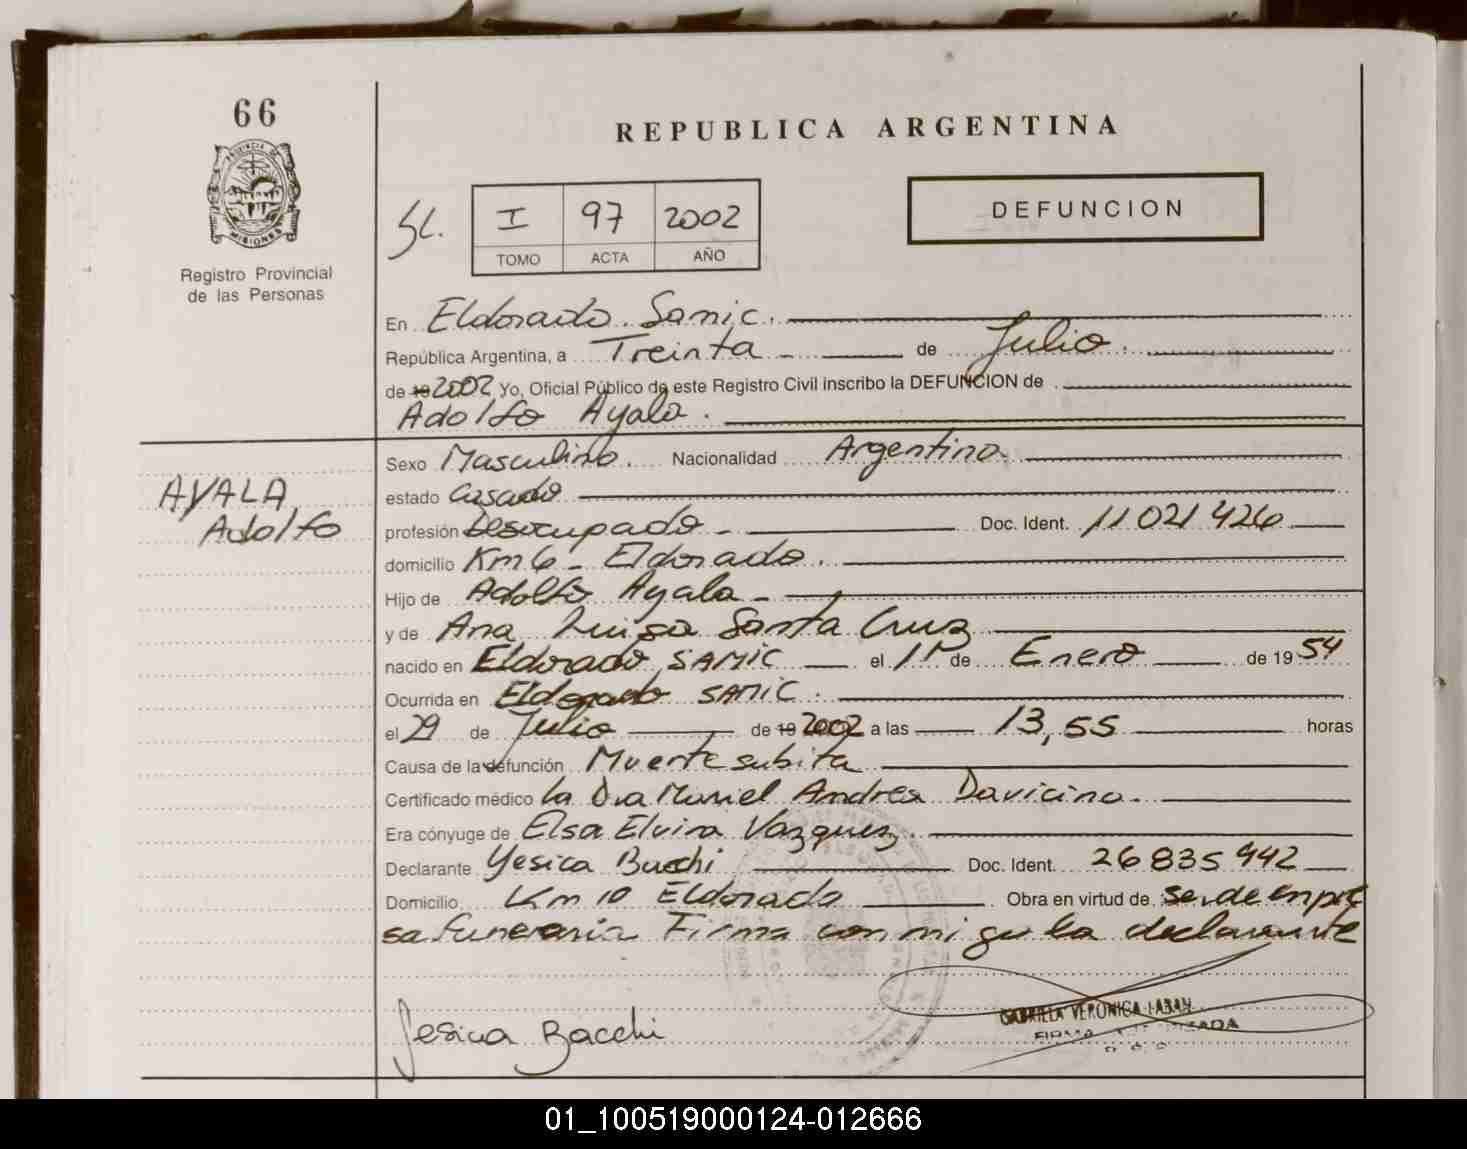 66
REPUBLICA ARGENTINA
PROVINCIA DE
MISIONES
Registro Provincial
de las Personas
SC. I 97 2002
TOMO ACTA AÑO
DEFUNCION
En Eldorado. Samic.
República Argentina, a Treinta - de Julio.
de 19 2002 Yo, Oficial Público de este Registro Civil inscribo la DEFUNCION de
Adolfo Ayala.
AYALA
Adolfo
Sexo Masculino. Nacionalidad Argentina.
estado Casado
profesión Desocupado - Doc. Ident. 11 021 426
domicilio Km 6 - Eldorado.
Hijo de Adolfo Ayala -
y de Ana Luisa Santa Cruz
nacido en Eldorado SAMIC el 1º de Enero de 1954
Ocurrida en Eldorado SAMIC.
el 29 de Julio de 19 2002 a las 13,55 horas
Causa de la defunción Muerte subita
Certificado médico la Dra Mariel Andrea Davicino.
Era cónyuge de Elsa Elvira Vazquez.
Declarante Yesica Bacchi Doc. Ident. 26 835 942
Domicilio Km 10 Eldorado Obra en virtud de Ser de enpre
sa funeraria Firma conmigo la declarante
Jesica Bacchi
GABRIELA VERONICA LABAN
FIRMA
01_100519000124-012666